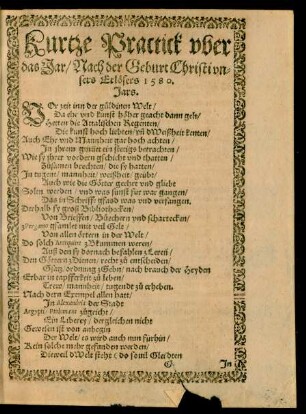 Kurtze Practick vber
das Jar / Nach der Geburt Christi vn-
sers Erlösers 1580.
Jars.
zeit inn der güldinen Welt /
Da ehr vnd kunst
Hetten die Attalischen Regenten /
Die kunst hoch liebten / vñ Weißheit kenten
Auch Ehr vnd Mannheit gar hoch achten /
In jhrem gmüet ein fleriges betrachten /
Wie sy jhrer vordern gschicht vnd thatten /
Zusamen brechten / die sy hatten /
In tugent / mannheit / weißheit / geübt /
Auch wie die Götter geehrt vnd gliebt
Solen werden / vnd was sunst für war gangen /
Das in Schrifft gfaßt was vnd verfangen.
Deshalb sy groß Bibliothecken /
Von Brieffen / Büechern vnd schartecken /
gsamlet mit veil Golt /
Von allen örttern in der Welt /
Do solch zkummen weren /
Auß den sy dornach befahlen Leren /
Den Götteren Dienen / recht zu entscheiden /
Gsatz / ordnung z'Gebn / nach brauch der Heyden
Erbar in tapfferkeit zu leben /
Trew / mannheit / tugendt zu erheben.
Nach dem Exempel allen hatt /
In Alexandria der Stadt
Aegypti Ptolemeus zugericht /
Ein Liberey / dergleichen nicht
Gewesen ist von anbegin
Der Welt / es wird auch nun fürhin /
Kein solche mehr gefunden werden /
Dieweil d'Welt steht ( do sind Gleerten
In